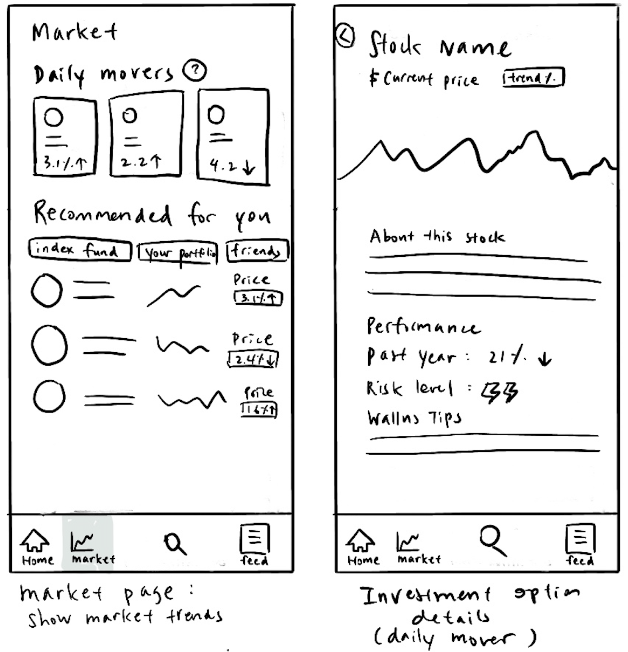 Market
Daily movers ?
3.1%↑ 2.2↑ 4.2↓
Recommended for you
index fund your portfolio friends
Price
3.1%↑
Price
2.4%↓
Price
1.6%↑
Home market feed
market page :
show market trends
<
Stock Name
$ Current price trend %
About this stock
Performance
Past year : 21% ↓
Risk level :
Tips
Home market feed
Investment option
details
(daily mover)